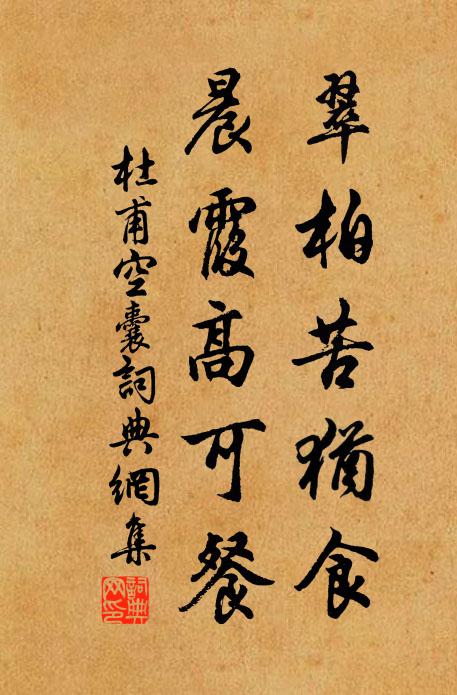 翠柏苦猶食
晨霞高可餐
杜甫空囊詞典網集
詞典
网印